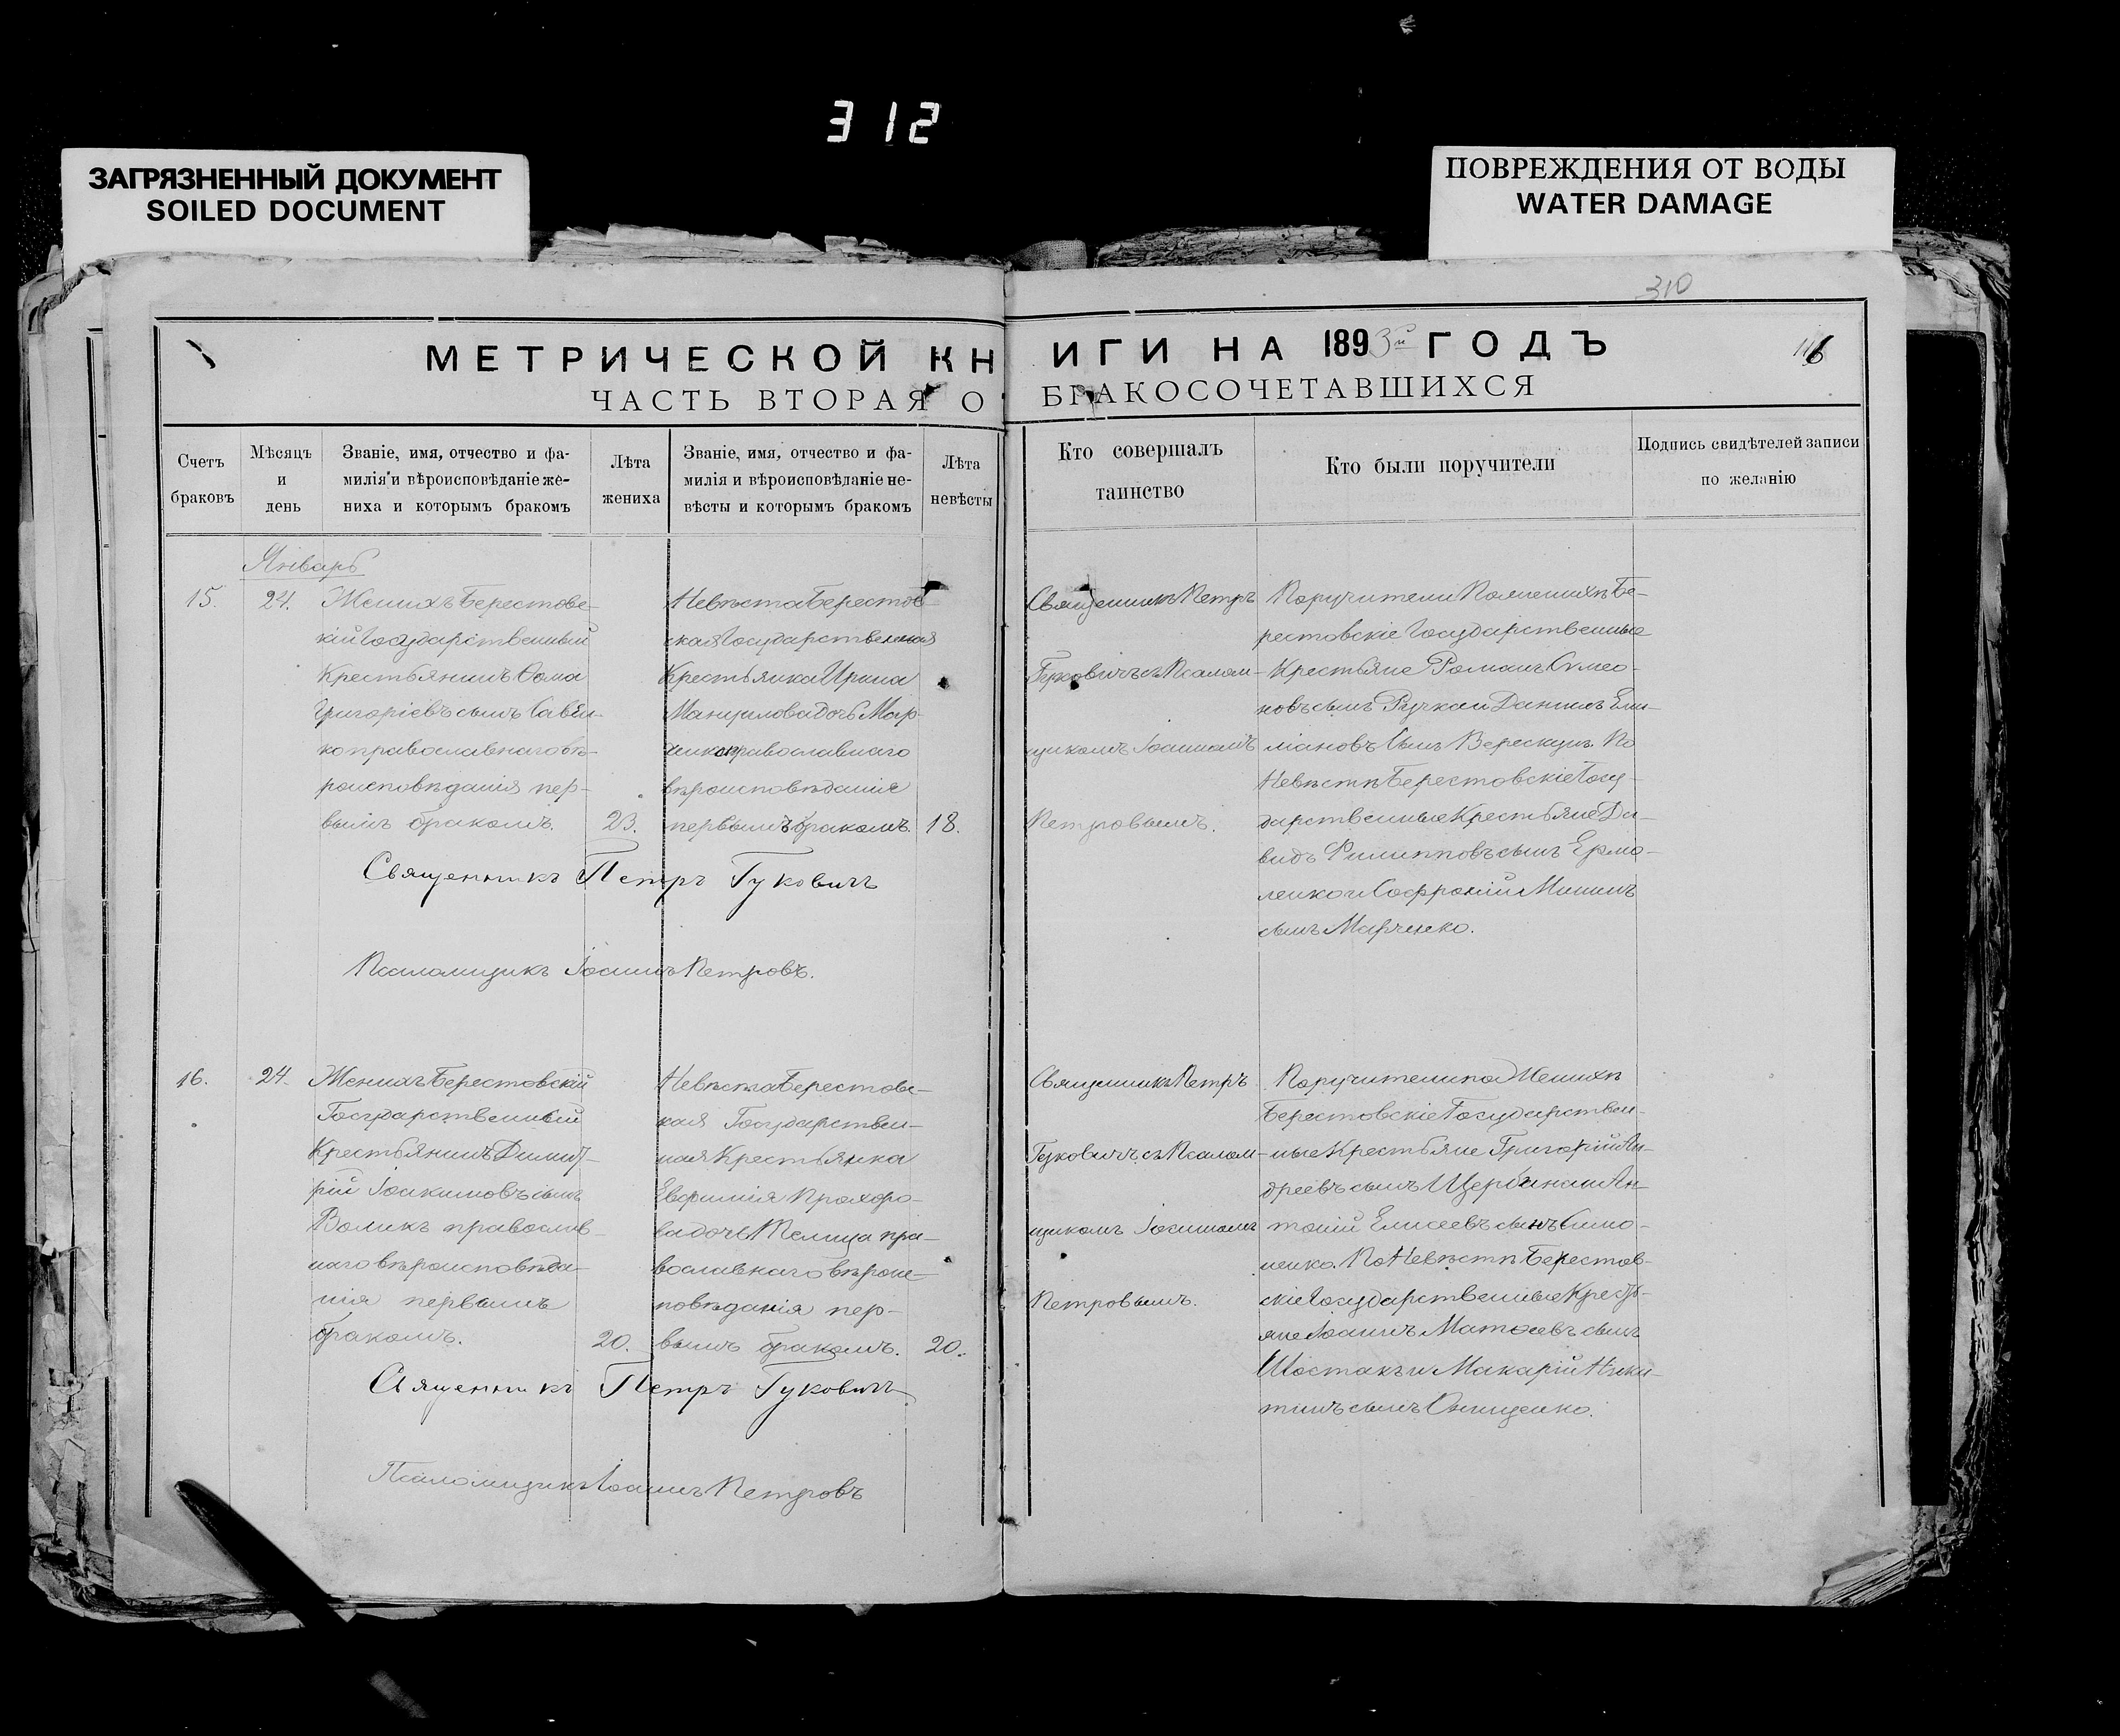 312
ЗАГРЯЗНЕННЫЙ ДОКУМЕНТ
SOILED DOCUMENT
ПОВРЕЖДЕНИЯ ОТ ВОДЫ
WATER DAMAGE
310
МЕТРИЧЕСКОЙ КНИГИ НА 1893й ГОДЪ
ЧАСТЬ ВТОРАЯ О БРАКОСОЧЕТАВШИХСЯ
Счетъ
браковъ
Мѣсяцъ
и
день
Званіе, имя, отчество и фа-
милія и вѣроисповѣданіе же-
ниха и которымъ бракомъ
Лѣта
жениха
Званіе, имя, отчество и фа-
милія и вѣроисповѣданіе не-
вѣсты и которымъ бракомъ
Лѣта
невѣсты
Кто совершалъ
таинство
Кто были поручители
Подпись свидѣтелей записи
по желанію
Январь
15.
24.
Женихъ Берестовс-
кій Государственный
Крестьянинъ Ѳома
Григоріевъ сынъ Савен-
ко православнаго вѣ-
роисповѣданія пер-
вымъ бракомъ.
23.
Невѣста Берестов-
ская Государственная
Крестьянка Ирина
Мануилова дочь Мар-
ченко православнаго
вѣроисповѣданія
первымъ бракомъ.
18.
Священникъ Петръ
Гуковичъ съ Псалом-
щикомъ Іоанномъ
Петровымъ.
Поручители По женихѣ Бе-
рестовскіе Государственные
Крестьяне Романъ Симео-
новъ сынъ Ручка и Даніилъ Еми-
ліановъ сынъ Верескунъ. По
Невѣстѣ Берестовскіе Госу-
дарственные Крестьяне Да-
видъ Филипповъ сынъ Ермо-
ленко и Софроній Мининъ
сынъ Марченко.
Священникъ Петръ Гуковичъ
Псаломщикъ Іоаннъ Петровъ.
16.
24.
Женихъ Берестовскій
Государственный
Крестьянинъ Димит-
рій Іоакимовъ сынъ
Воликъ православ-
наго вѣроисповѣда-
нія первымъ
бракомъ.
20.
Невѣста Берестовс-
кая Государствен-
ная Крестьянка
Евфимія Прохоро-
ва дочь Телица пра-
вославнаго вѣроис-
повѣданія пер-
вымъ бракомъ.
20.
Священникъ Петръ
Гуковичъ съ Псалом-
щикомъ Іоанномъ
Петровымъ.
Поручители по Женихѣ
Берестовскіе Государствен-
ные Крестьяне Григорій Ан-
дреевъ сынъ Щербина и Ан-
тоній Елисеевъ сынъ Симо-
ненко. По Невѣстѣ Берестов-
скіе Государственные Кресть-
яне Іоаннъ Матѳеевъ сынъ
Шостакъ и Макарій Ники-
тинъ сынъ Онищенко.
Священникъ Петръ Гуковичъ
Псаломщикъ Іоаннъ Петровъ